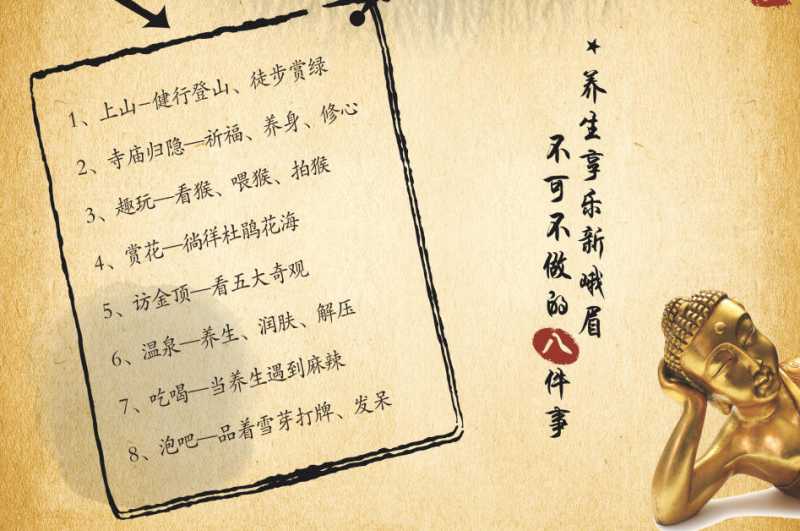 ★养生享乐新峨眉
不可不做的八件事
1、上山–健行登山、徒步赏绿
2、寺庙归隐—祈福、养身、修心
3、趣玩—看猴、喂猴、拍猴
4、赏花—徜徉杜鹃花海
5、访金顶—看五大奇观
6、温泉—养生、润肤、解压
7、吃喝—当养生遇到麻辣
8、泡吧—品着雪芽打牌、发呆